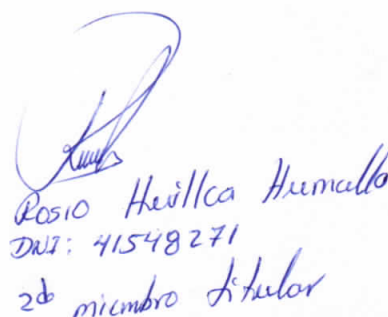 Rosio Huillca Humalla
DNI: 41548271
2do miembro titular